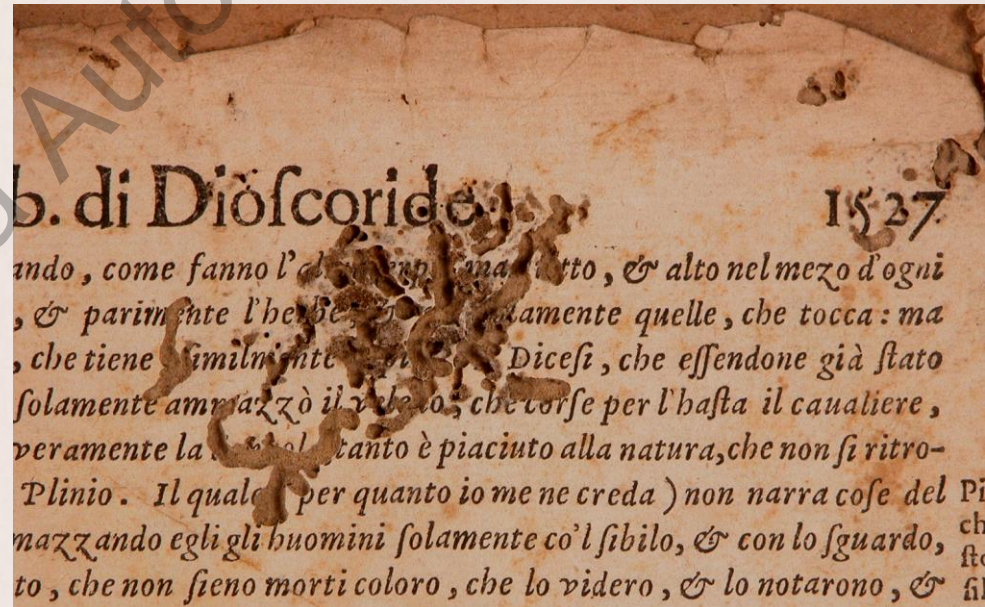 Auto
b. di Dioſcoride. 1527
ando, come fanno l' tto, & alto nel mezo d'ogni
, & parimente l'herbe amente quelle, che tocca: ma
, che tiene ſimilmente Diceſi, che eſſendone già ſtato
ſolamente ammazzò il veleno, che corſe per l'haſta il caualiere,
veramente la tanto è piaciuto alla natura, che non ſi ritro-
Plinio. Il quale per quanto io me ne creda) non narra coſe del Pi
mazzando egli gli huomini ſolamente co'l ſibilo, & con lo ſguardo, ch
ſto
to, che non ſieno morti coloro, che lo videro, & lo notarono, & ſil